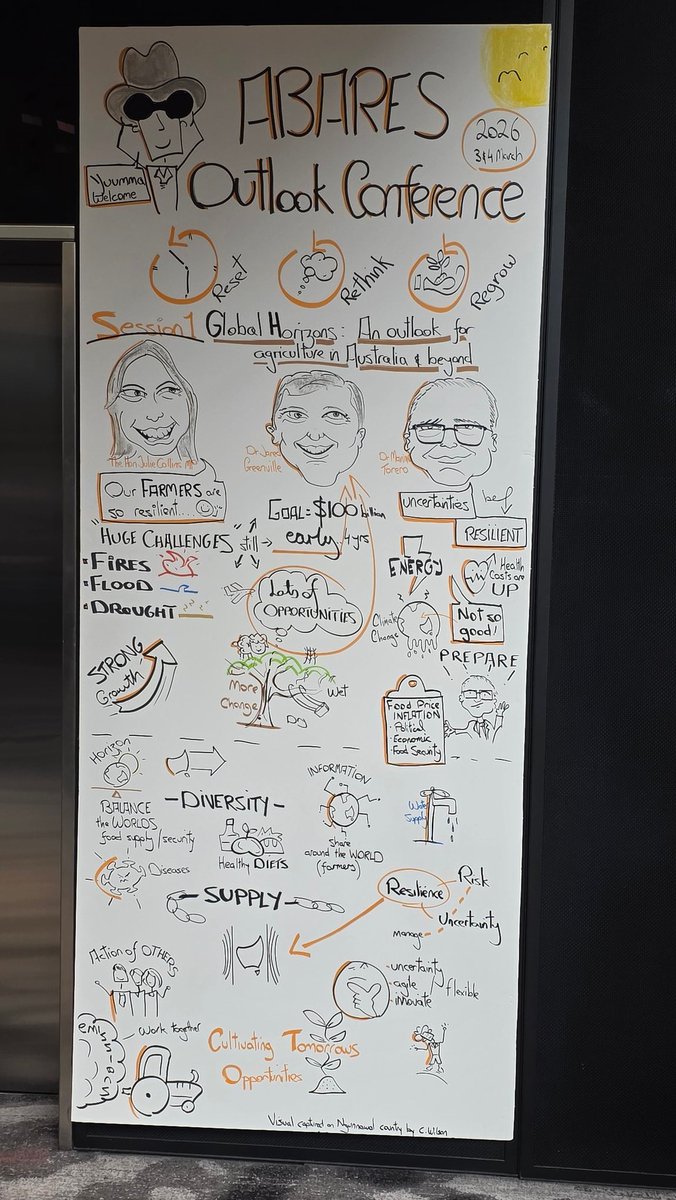 ABARES
Outlook Conference
2026
3&4 March
Yuumma
Welcome
Reset
Rethink
Regrow
Session 1 Global Horizons: An outlook for
agriculture in Australia & beyond
The Hon Julie Collins MP
Dr Jared
Greenville
Dr Maximo
Torero
Our FARMERS are
so resilient....
HUGE CHALLENGES still
FIRES
FLOOD
DROUGHT
STRONG
Growth
GOAL = $100 billion
early 4yrs
Lots of
OPPORTUNITIES
More
Change
Wet
Dry
uncertainties
be
RESILIENT
ENERGY
Health
Costs are
UP
Climate
Change
Not so
good!
PREPARE
Food Price
INFLATION
- Political
- Economic
- Food Security
Horizon
BALANCE
the WORLDS
food supply/security
Diseases
- DIVERSITY -
Healthy DIETS
INFORMATION
Share
around the WORLD
(farmers)
Water
Supply
- SUPPLY -
Resilience
Risk
Uncertainty
manage
Action of OTHERS
uncertainty
agile
innovate
flexible
Work together
Cultivating Tomorrows
Opportunities
Visual captured on Ngunnawal country by C. Wilson